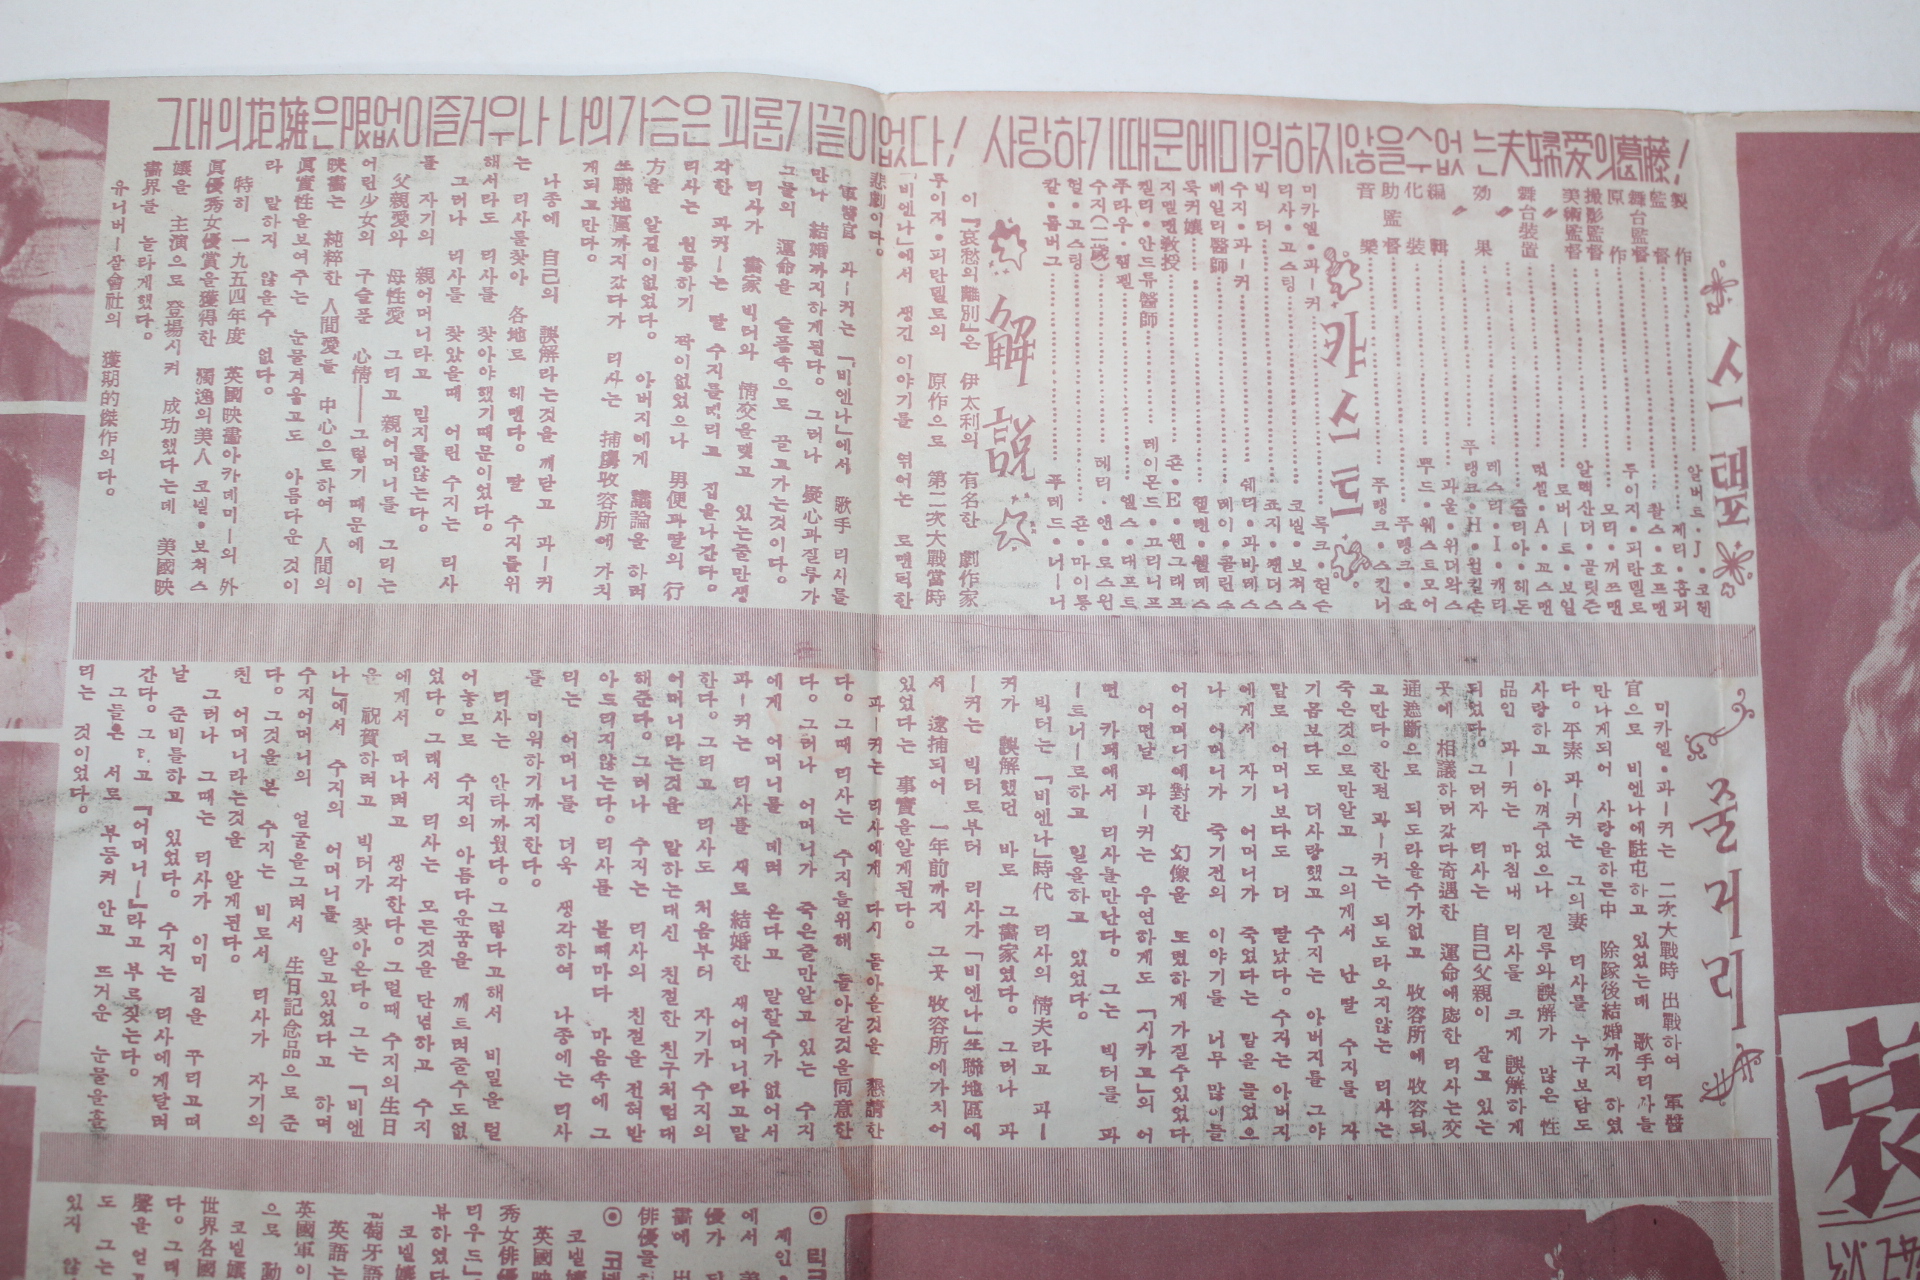 그대의抱擁은限없이즐거우나 나의가슴은 괴롭기끝이없다! 사랑하기때문에미워하지않을수없는夫婦愛의葛藤!
스탭
製作 알버트·J·코헨
監督 제리·홉퍼
舞台監督 촬스·호프맨
原作 루이지·피란델로
撮影監督 모리·꺼쯔맨
美術監督 알렉산더·골릿즌
〃 로버ー트·보일
舞台裝置 럿셀·A·꼬스맨
〃 쥴리아·헤돈
効果 레스리·I·캐리
〃 푸랭크·H·윌킨손
編輯 파울·위더왁스
化裝 뿌드·웨스트모어
助監督 푸랭크·쇼
音樂 푸랭크·스킨너
카스트
미카엘·파ー커 록크·헏슨
리사·고스팅 코넬·보쳐스
빅터 죠지·쌘더스
수지·파ー커 쉐리·파바데스
베일리醫師 데이·콜린스
뚝커孃 헬렌·웰레스
지멜맨敎授 죤·E·웬그래프
켈리·안드류醫師 데이몬드·끄리니프
푸라우·렘펠 엘스·대프트
수지(二歲) 헤티·앤·로스윈
헐·고스팅 죤·마이통
칼·홈버그 푸레드·너ー너
解說
이『哀愁의離別』은 伊太利의 有名한 劇作家
루이지·피란델로의 原作으로 第二次大戰當時
「비엔나」에서 생긴 이야기를 엮어논 로맨틱한
悲劇이다。
軍醫官 파ー커는 「비엔나」에서 歌手 리사를
만나 結婚까지하게된다。그러나 疑心과질투가
그들의 運命을 슬픔속으로 끌고가는것이다。
리사가 畵家 빅터와 情交을맺고 있는줄만생
각한 파커ー는 딸 수지를데리고 집을나간다。
리사는 원통하기 짝이없었으나 男便과딸의 行
方을 알길이없었다。 아버지에게 議論을 하려
쏘聯地區까지갔다가 리사는 捕虜收容所에 가치
게되고만다。
나종에 自己의 誤解라는것을 깨닫고 파ー커
는 리사를찾아 各地로 헤맨다。딸 수지를위
해서라도 리사를 찾아야했기때문이었다。
그러나 리사를 찾았을때 어린 수지는 리사
를 자기의 親어머니라고 믿지를않는다。
父親愛와 母性愛 그리고 親어머니를 그리는
어린少女의 구슬픈 心情——그렇기 때문에 이
映畵는 純粹한 人間愛를 中心으로하여 人間의
眞實性을보여주는 눈물겨웁고도 아름다운것이
라 말하지 않을수 없다。
特히 一九五四年度 英國映畵아카데미ー의 外
國優秀女優賞을獲得한 獨逸의美人 코넬·보쳐스
孃을 主演으로 登場시켜 成功했다는데 美國映
畵界를 놀라게했다。
유니버ー살會社의 獲期的傑作의다。
줄거리
미카엘·파ー커는 二次大戰時 出戰하여 軍醫
官으로 비엔나에駐屯하고 있었는데 歌手리사를
만나게되어 사랑을하든中 除隊後結婚까지 하였
다。平素파ー커는 그의妻 리사를 누구보담도
사랑하고 아껴주었으나 질투와誤解가 많은 性
品인 파ー커는 마침내 리사를 크게 誤解하게
되었다。그러자 리사는 自己父親이 살고 있는
곳에 相議하러갔다奇遇한 運命에處한 리사는交
通遮斷으로 되도라올수가없고 收容所에 收容되
고만다。한편 파ー커는 되도라오지않는 리사는
죽은것으로만알고 그의게서 난 딸 수지를 자
기몸보다도 더사랑했고 수지는 아버지를 그야
말로 어머니보다도 더 딸랐다。수지는 아버지
에게서 자기 어머니가 죽었다는 말을 들었으
나 어머니가 죽기전의 이야기를 너무 많이들
어어머니에對한 幻像을 또렸하게 가질수있었다
어떤날 파ー커는 우연하게도 「시카고」의 어
떤 카페에서 리사를만난다。그는 빅터를 파
ー트너ー로하고 일을하고 있었다。
빅터는 「비엔나」時代 리사의 情夫라고 파ー
커가 誤解했던 바로 그畵家였다。그러나 파
ー커는 빅터로부터 리사가「비엔나」쏘聯地區에
서 逮捕되어 一年前까지 그곳 收容所에가치어
있었다는 事實을알게된다。
파ー커는 리사에게 다시 돌아올것을 懇請한
다。그때 리사는 수지를위해 돌아갈것을同意한
다。그러나 어머니가 죽은줄만알고 있는 수지
에게 어머니를 데려 온다고 말할수가 없어서
파ー커는 리사를 새로 結婚한 새어머니라고말
한다。그리고 리사도 처음부터 자기가 수지의
어머니라는것을 말하는대신 친절한 친구처럼대
해준다。그러나 수지는 리사의 친절을 전혀 받
아드리지않는다。리사를 볼때마다 마음속에 그
리는 어머니를 더욱 생각하여 나종에는 리사
를 미워하기까지한다。
리사는 안타까웠다。그렇다고해서 비밀을 털
어놓므로 수지의 아름다운꿈을 깨트려줄수도없
었다。그래서 리사는 모든것을 단념하고 수지
에게서 떠나려고 생각한다。그럴때 수지의生日
은 祝賀하려고 빅터가 찾아온다。그는 「비엔
나」에서 수지의 어머니를 알고있었다고 하며
수지어머니의 얼굴을그려서 生日記念品으로 준
다。그것을본 수지는 비로서 리사가 자기의
친 어머니라는것을 알게된다。
그러나 그때는 리사가 이미 짐을 꾸리고떠
날 준비를하고 있었다。수지는 리사에게달려
간다。그리고 『어머니ー』라고부르짖는다。
그들은 서로 부등켜 안고 뜨거운 눈물을흘
리는 것이었다。
제인·
에서 美
優가 되
畵에 出
俳優를
◉ 코넬
코넬孃
英國映
秀女俳優
리우드」
뷰하였다
코넬孃
萄牙語
英語는
英國軍이
으로 勤
코넬孃
世界各國
다。그때
聲을 얻
도 그는
있지 않
哀